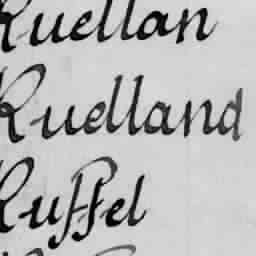 Ruellan
Ruelland
Ruffel